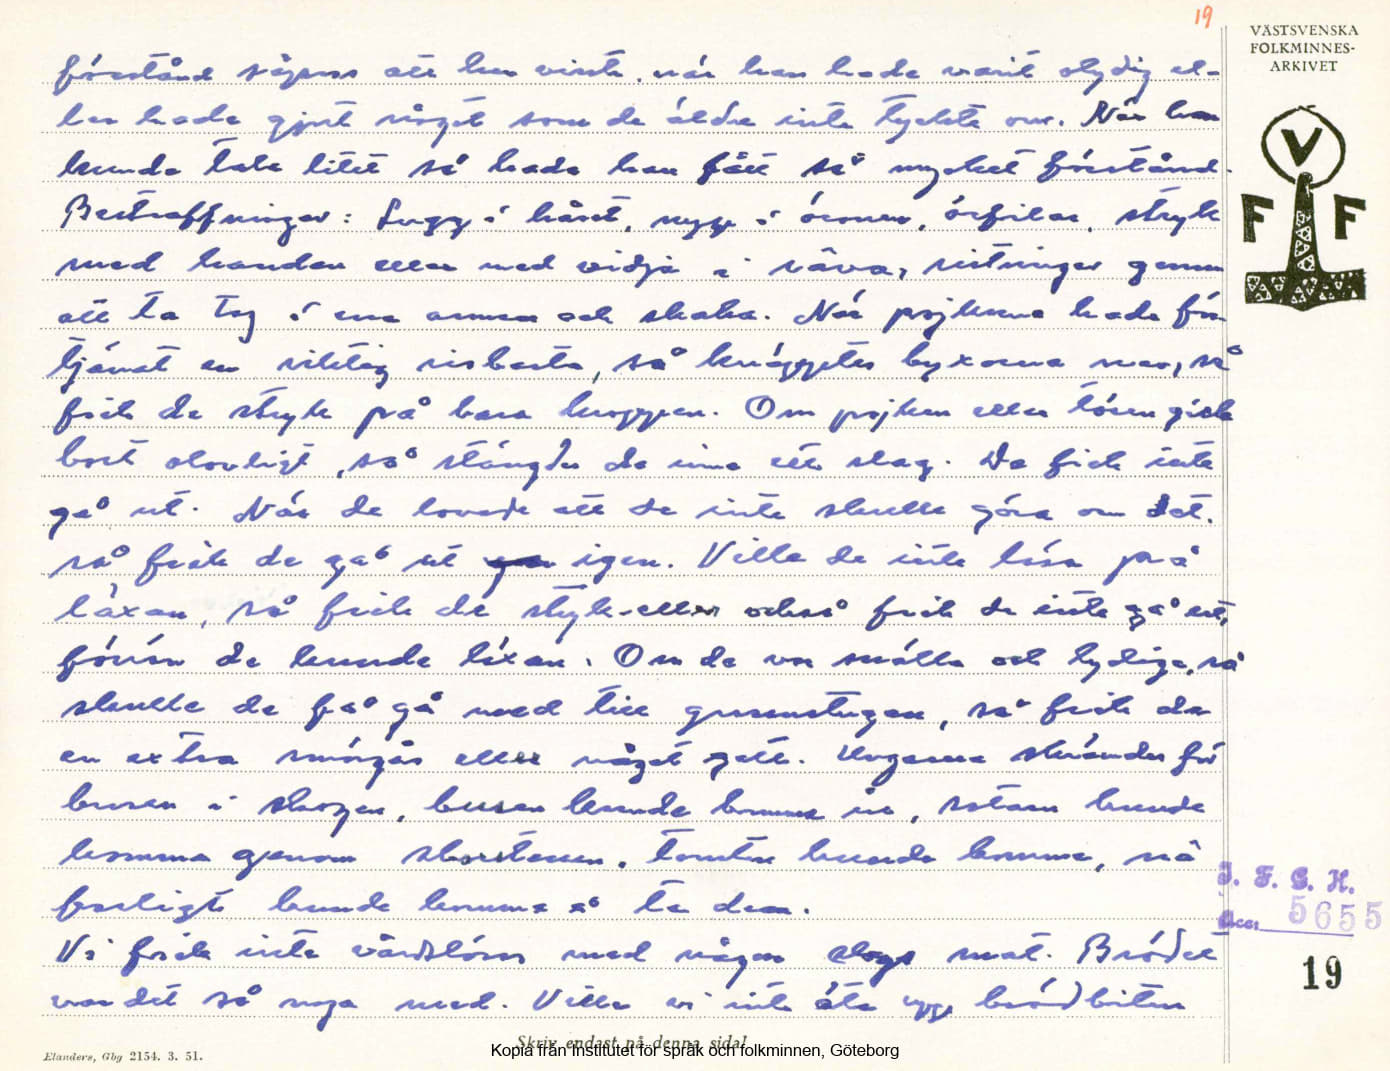 19
VÄSTSVENSKA
FOLKMINNES-
ARKIVET
V
F F
förstånd såpass att han visste, när han hade varit olydig el-
ler hade gjort något som de äldre inte tyckte om. När han
kunde tala litet så hade han fått så mycket förstånd.
Bestraffningar: Lugg i håret, nyp i öronen, örfilar, stryk
med handen eller med vidja i räva, ristningar genom
att ta tag i ena armen och skaka. När pojkarna hade för-
tjänat en riktig risbasta, så knäpptes byxorna ner, så
fick de stryk på bara kroppen. Om pojken eller tösen gick
bort olovligt, så stängdes de inne ett slag. De fick inte
gå ut. När de lovade att de inte skulle göra om det,
så fick de gå ut igen. Ville de inte läsa på
läxan, så fick de stryk eller också fick de inte gå ut,
förrän de kunde läxan. Om de var snälla och lydiga, så
skulle de få gå med till grannstugan, så fick de
en extra smörgås eller något gott. Ungarna skrämdes för
busen i skogen, busen kunde komma in, sotarn kunde
komma genom skorstenen, tomten kunde komma, nå
farligt kunde komma å ta dem.
Vi fick inte vårdslösa med någon slags mat. Brödet
var det så noga med. Ville vi inte äta upp brödbiten
J. F. G. H.
Acc. 5655
19
Skriv endast på denna sida!
Kopia från Institutet för språk och folkminnen, Göteborg
Elanders, Gbg 2154. 3. 51.